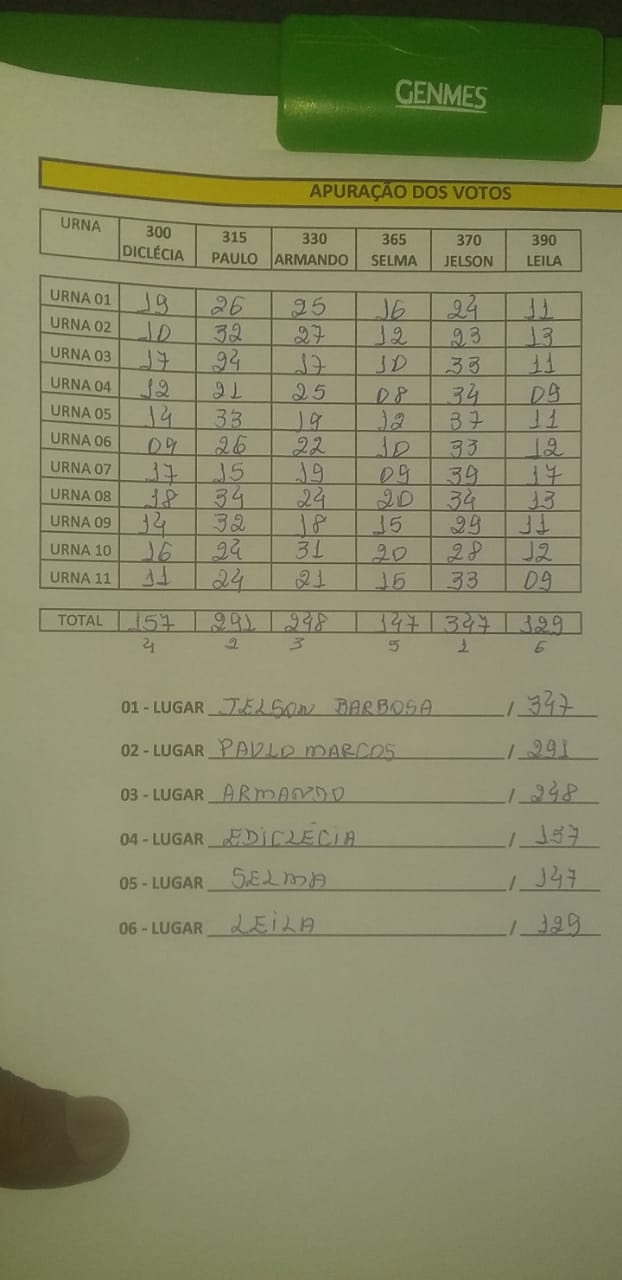 GENMES
APURAÇÃO DOS VOTOS
URNA 300 DICLÉCIA 315 PAULO 330 ARMANDO 365 SELMA 370 JELSON 390 LEILA
URNA 01 19 26 25 16 24 11
URNA 02 10 32 27 12 23 13
URNA 03 17 24 17 10 33 11
URNA 04 12 21 25 08 34 09
URNA 05 14 33 19 12 37 11
URNA 06 09 26 22 10 33 12
URNA 07 17 15 19 09 39 17
URNA 08 18 34 24 20 34 13
URNA 09 14 32 18 15 29 11
URNA 10 16 24 31 20 28 12
URNA 11 11 24 21 15 33 09
TOTAL 157 291 248 147 347 129
4 2 3 5 1 6
01 - LUGAR JELSON BARBOSA / 347
02 - LUGAR PAULO MARCOS / 291
03 - LUGAR ARMANDO / 248
04 - LUGAR EDICLÉCIA / 157
05 - LUGAR SELMA / 147
06 - LUGAR LEILA / 129